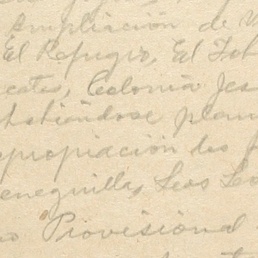 Ampliación de V
El Refugio, El Fch
cates, Colonia Jes
habiéndose plan
propiación de
eneguillas, Los Lo
Provisional